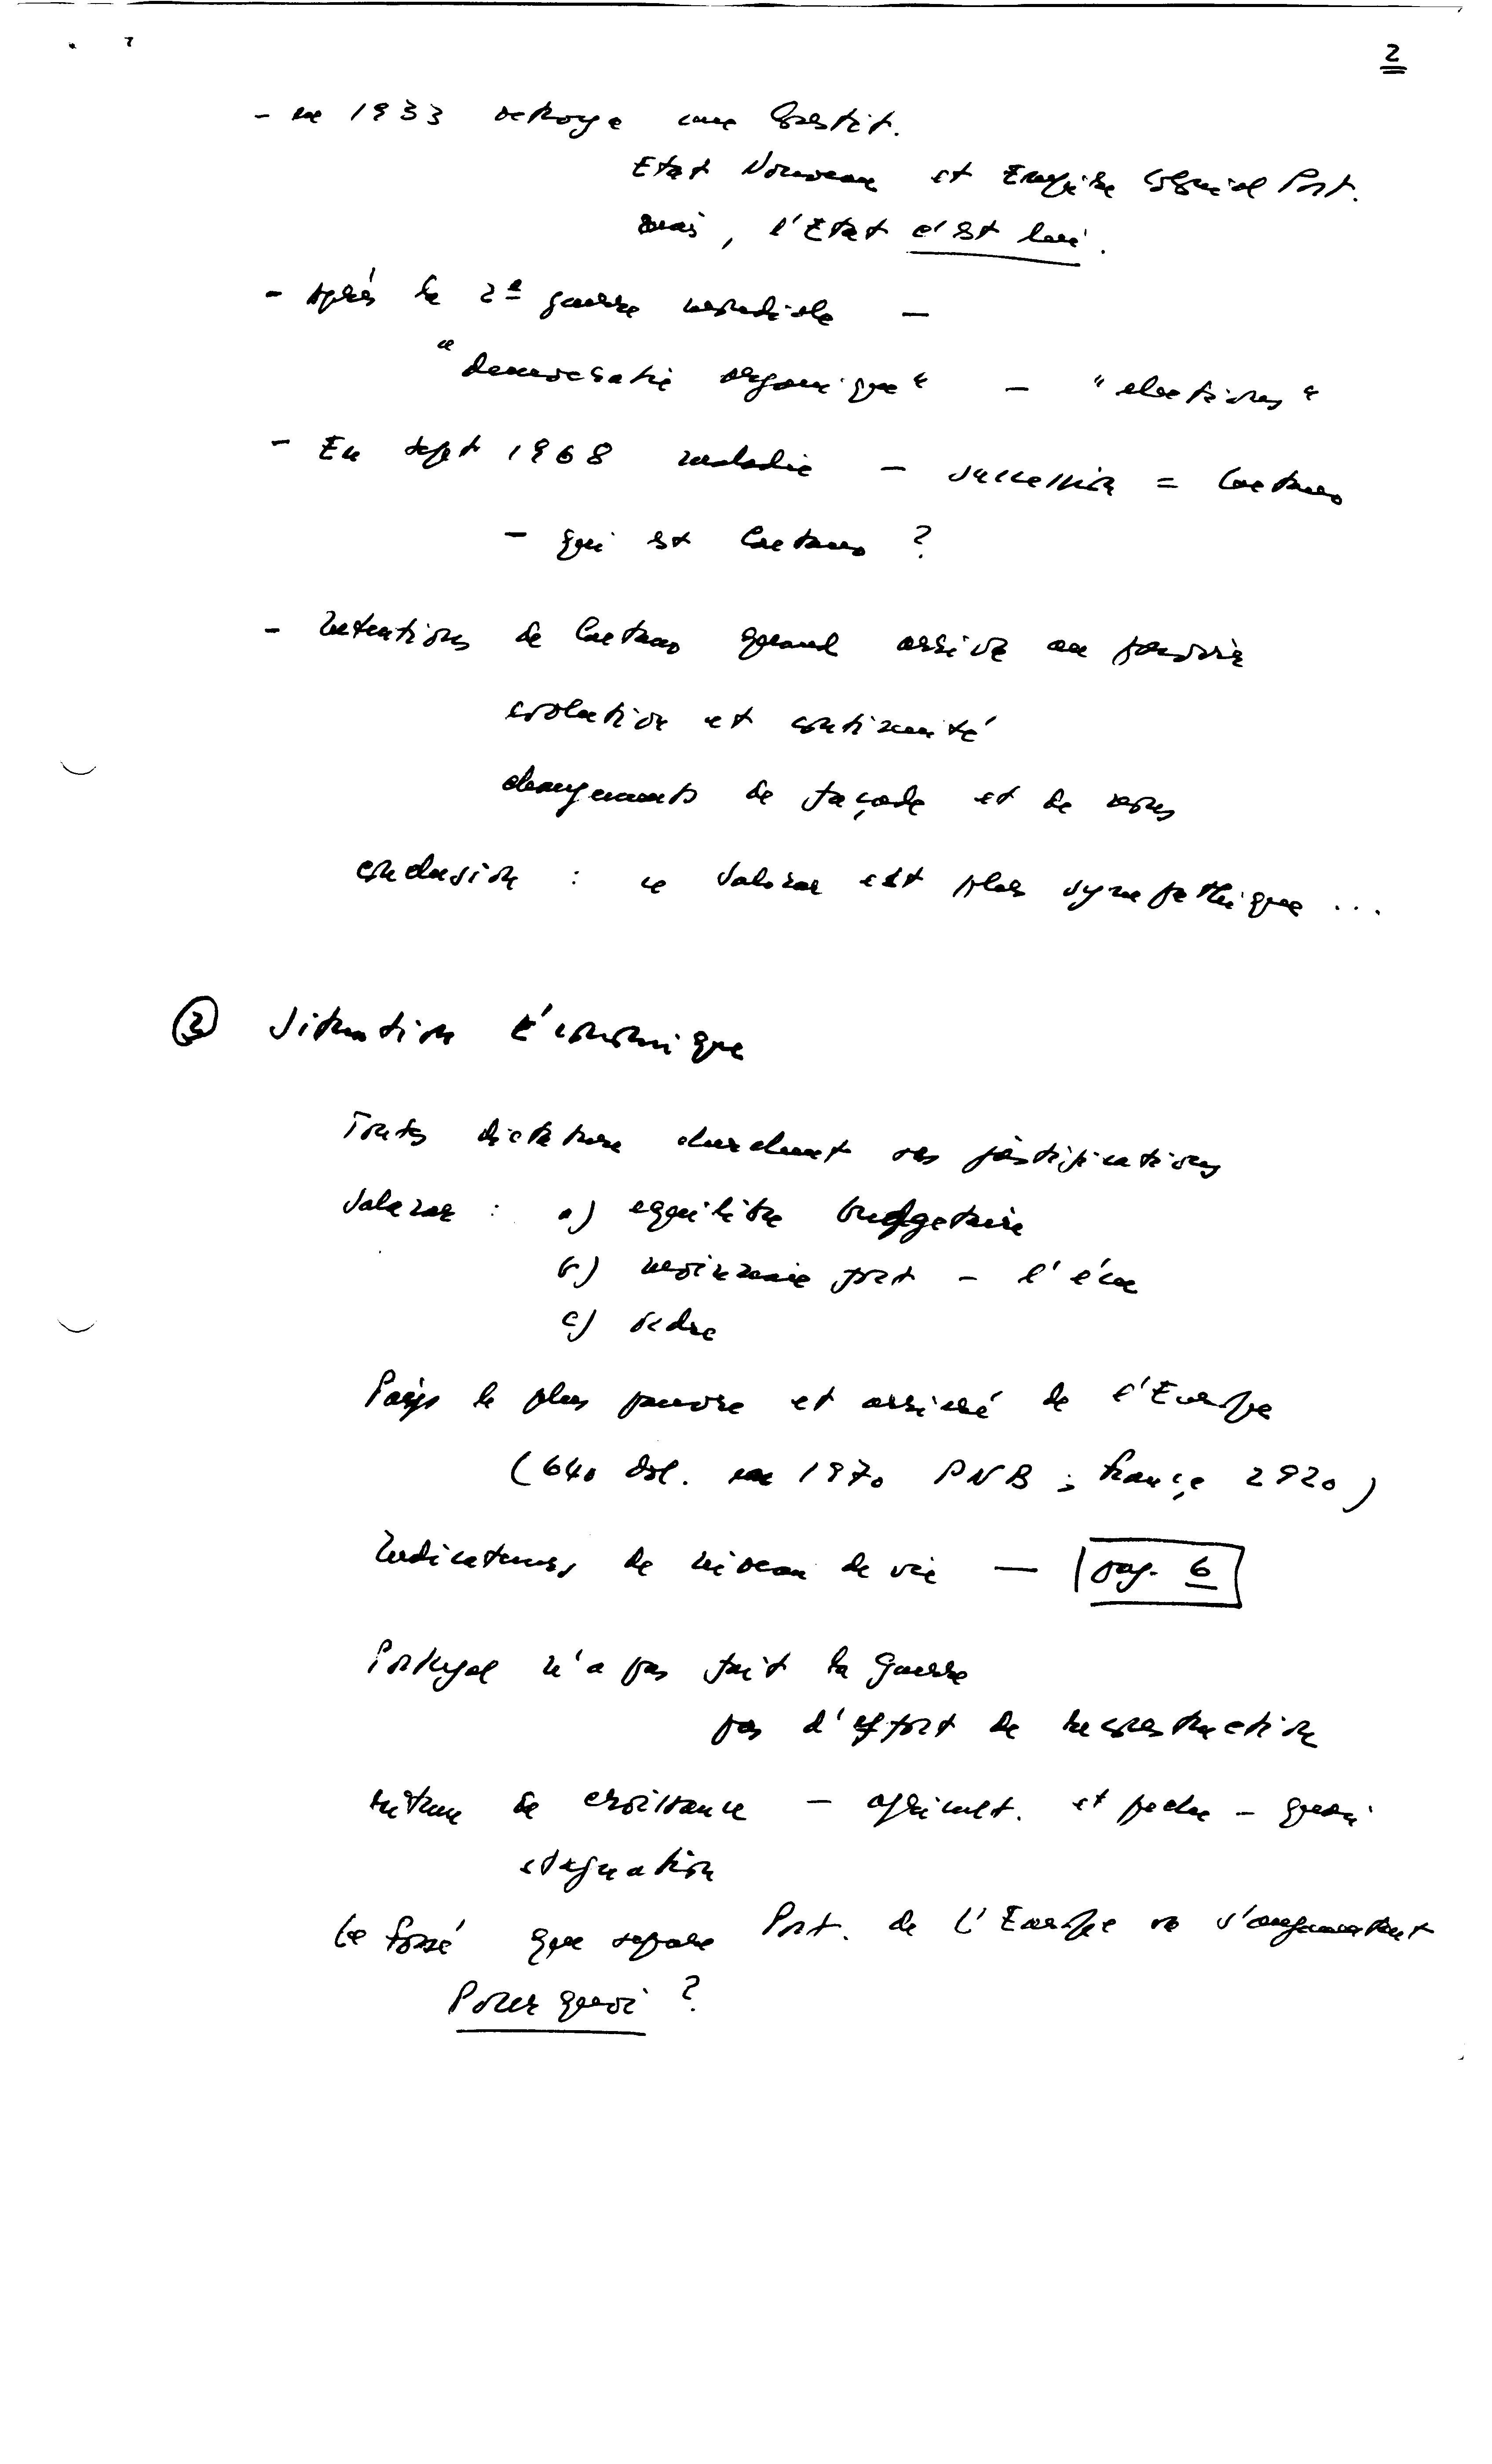 2
- en 1933 octroye une Constit.
Etat Nouveau et Empire Colonial Port.
mais, l'Etat c'est lui.
- Après la 2e guerre mondiale -
"democratie organique" - "elections"
- En sept 1968 maladie - succession = Caetano
- qui est Caetano ?
- Intentions de Caetano quand arrive au pouvoir
evolution et continuité
changements de façade et de noms
conclusion : le Salazar est plus sympathique ...
② Situation Économique
Toutes dictature cherchent ses justifications
Salazar : a) equilibre budgetaire
b) monnaie fort - l'écu
c) ordre
Pays le plus pauvre et arrieré de l'Europe
(640 dol. en 1970 PNB ; France 2920)
Indicateurs de niveau de vie — pag. 6
Portugal n'a pas fait la Guerre
pas d'effort de reconstruction
ritme de croissance - agricult. et peche - quasi
stagnation
Le fossé que separe Port. de l'Europe va s'augmentant
Pourquoi ?